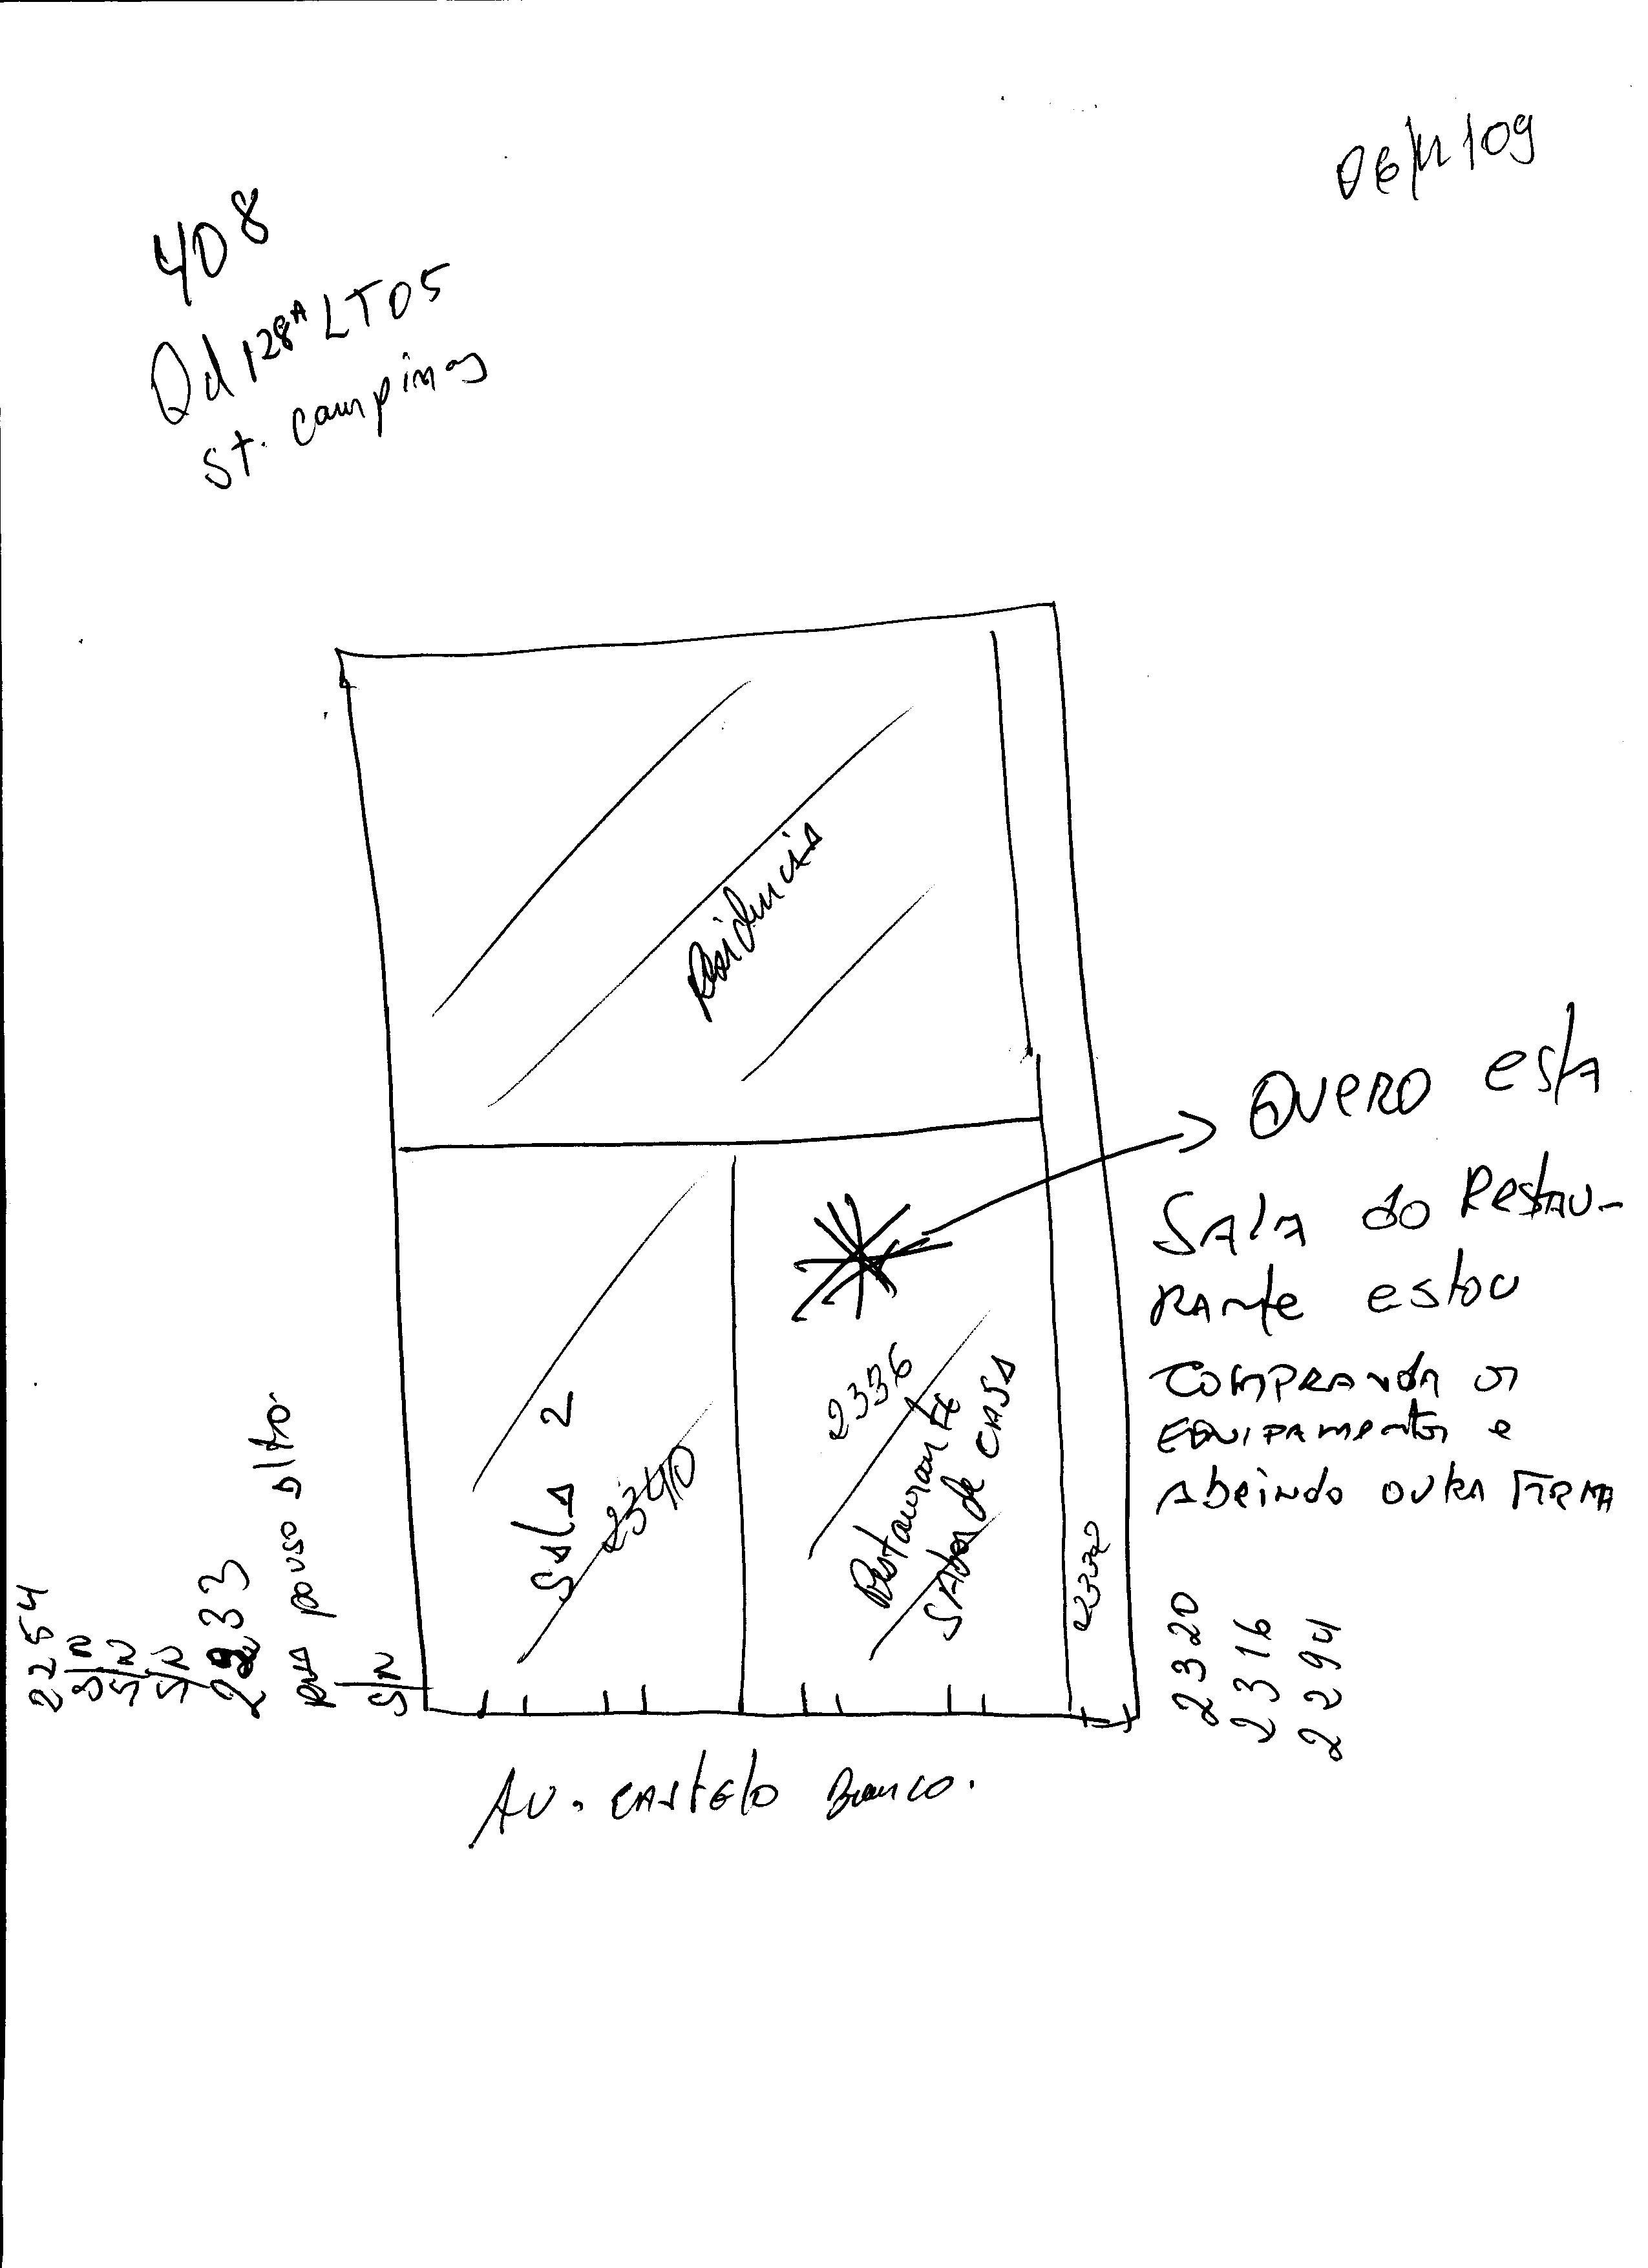 06/11/09
408
Qd 128A LT05
St. Campinas
Residencia
QUERO esta
SALA do Restau-
RANte estou
COMPRANDO os
EQUIPAMentos e
Abrindo outra FIRMA
2336
Restaurante
SAbor de CASA
Sala 2
2340
2332
2254
SN
SN
SN
2233
Rua pouso alto
SN
2320
2316
2294
Av. CASTELO Branco.